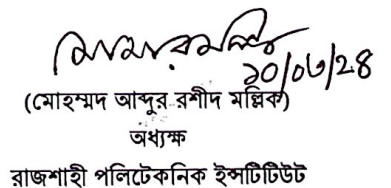 ১০/০৬/২৪
(মোহম্মদ আব্দুর রশীদ মল্লিক)
অধ্যক্ষ
রাজশাহী পলিটেকনিক ইন্সটিটিউট